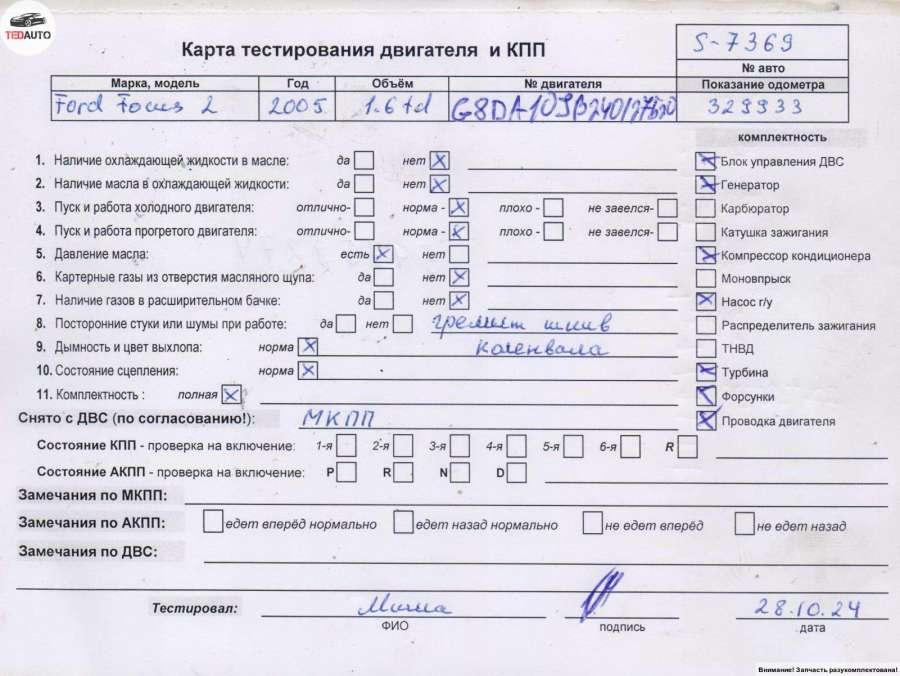 TEDAUTO
Карта тестирования двигателя и КПП
S-7369
№ авто
Марка, модель Год Объём № двигателя Показание одометра
Ford Focus 2 2005 1.6 td 329933
комплектность
1. Наличие охлаждающей жидкости в масле: да нет X Блок управления ДВС
2. Наличие масла в охлаждающей жидкости: да нет X Генератор
3. Пуск и работа холодного двигателя: отлично- норма - X плохо - не завелся- Карбюратор
4. Пуск и работа прогретого двигателя: отлично- норма - X плохо - не завелся- Катушка зажигания
5. Давление масла: есть X нет Компрессор кондиционера
6. Картерные газы из отверстия масляного щупа: да нет X Моновпрыск
7. Наличие газов в расширительном бачке: да нет X Насос г/у
8. Посторонние стуки или шумы при работе: да нет гремит шкив Распределитель зажигания
9. Дымность и цвет выхлопа: норма X коленвала ТНВД
10. Состояние сцепления: норма X Турбина
11. Комплектность : полная X Форсунки
Снято с ДВС (по согласованию!): МКПП Проводка двигателя
Состояние КПП - проверка на включение: 1-я 2-я 3-я 4-я 5-я 6-я R
Состояние АКПП - проверка на включение: P R N D
Замечания по МКПП:
Замечания по АКПП: едет вперёд нормально едет назад нормально не едет вперёд не едет назад
Замечания по ДВС:
Тестировал: Миша 28.10.24
ФИО подпись дата
Внимание! Запчасть разукомплектована!